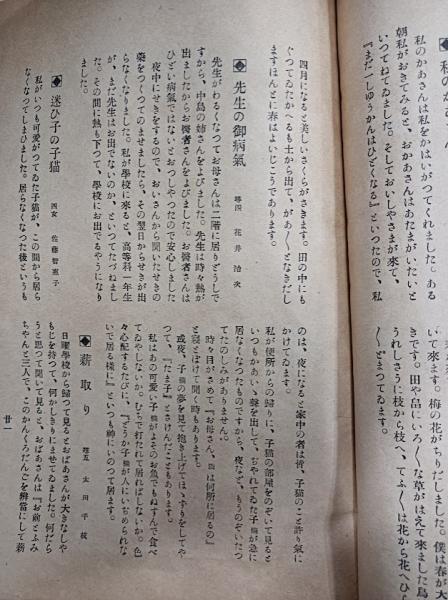 私のかあさんは私をかはいがつてくれました。ある
朝私がおきてみると、おかあさんはあたまがいたいと
いつてねてゐました。そしておいしやさまが來て、
『まだ一しゆうかんはひどくなる』といつたので、私
いて來ます。梅の花がちりだしました。僕は春が
きです。田や畠にいろ〳〵な草がはえて來ました鳥
うれしさうに枝から枝へ、てふ〳〵は花から花へひ
とまつてゐます。
四月になると美しいさくらがさきます。田の中にも
ぐつてゐたかへるも土から出て、があ〳〵となきだし
ますほんとに春はよいじこうであります。
◆先生の御病氣
尋四 花井治次
先生がわるくなつてお母さんは二階に居りどうしで
すから、中島の姉さんをよびました。先生は時々熱が
出ましたからお醫者さんをよびました。お醫者さんは
ひどい病氣ではないとおつしやつたので安心しました
夜中にせきをするので、おいさんから聞いたせきの
藥をつくつてのませましたら、その翌日からせきが出
らなくなりました。私が學校に來ると、高等科一年生
が、まだ先生はお出でないのか、といつてたづねまし
た。その間に熱も下つて、學校にお出でるやうになり
ました。
◆迷ひ子の子猫
四女 佐藤智惠子
私がいつも可愛がつてゐた子猫が、この間から居ら
なくなつてしまひました。居らなくなつた後といふも
のは、夜になると家中の者は皆、子猫のこと許り氣に
かけてゐます。
私が便所からの歸りに、子猫の部屋をのぞいて見ると
いつもかあいゝ聲を出して、じやれてゐた子猫が急に
居なくなつたものですから、夜など、もうのぞいたつ
てたのしみがありません。
時々目がさめて『お母さん、猫は何所に居るの』
と寢とぼけて聞く時もあります。
或夜、子猫の夢を見て抱き上げてほゝずりをしてや
つて、『たま子』とさけんだこともあります。
私はあの可愛い子猫がよそのお魚でもぬすんで食べ
てゐやしないか、むちで打たれて居ればしないか。色
々心配するたびに、『どうか子猫が人にいぢめられな
いで居る樣に』といつも神いのつて居ます。
◆薪取り
尋五 太田千枝
日曜學校から歸つて見るとおばあさんが大きなしや
もじを持つて、何かしきりにまぜてゐました。何だら
うと思つて聞いて見ると、おばあさんは『お前とふみ
ちやんと三人で、このかんくろだんごを辨當にして薪
廿一